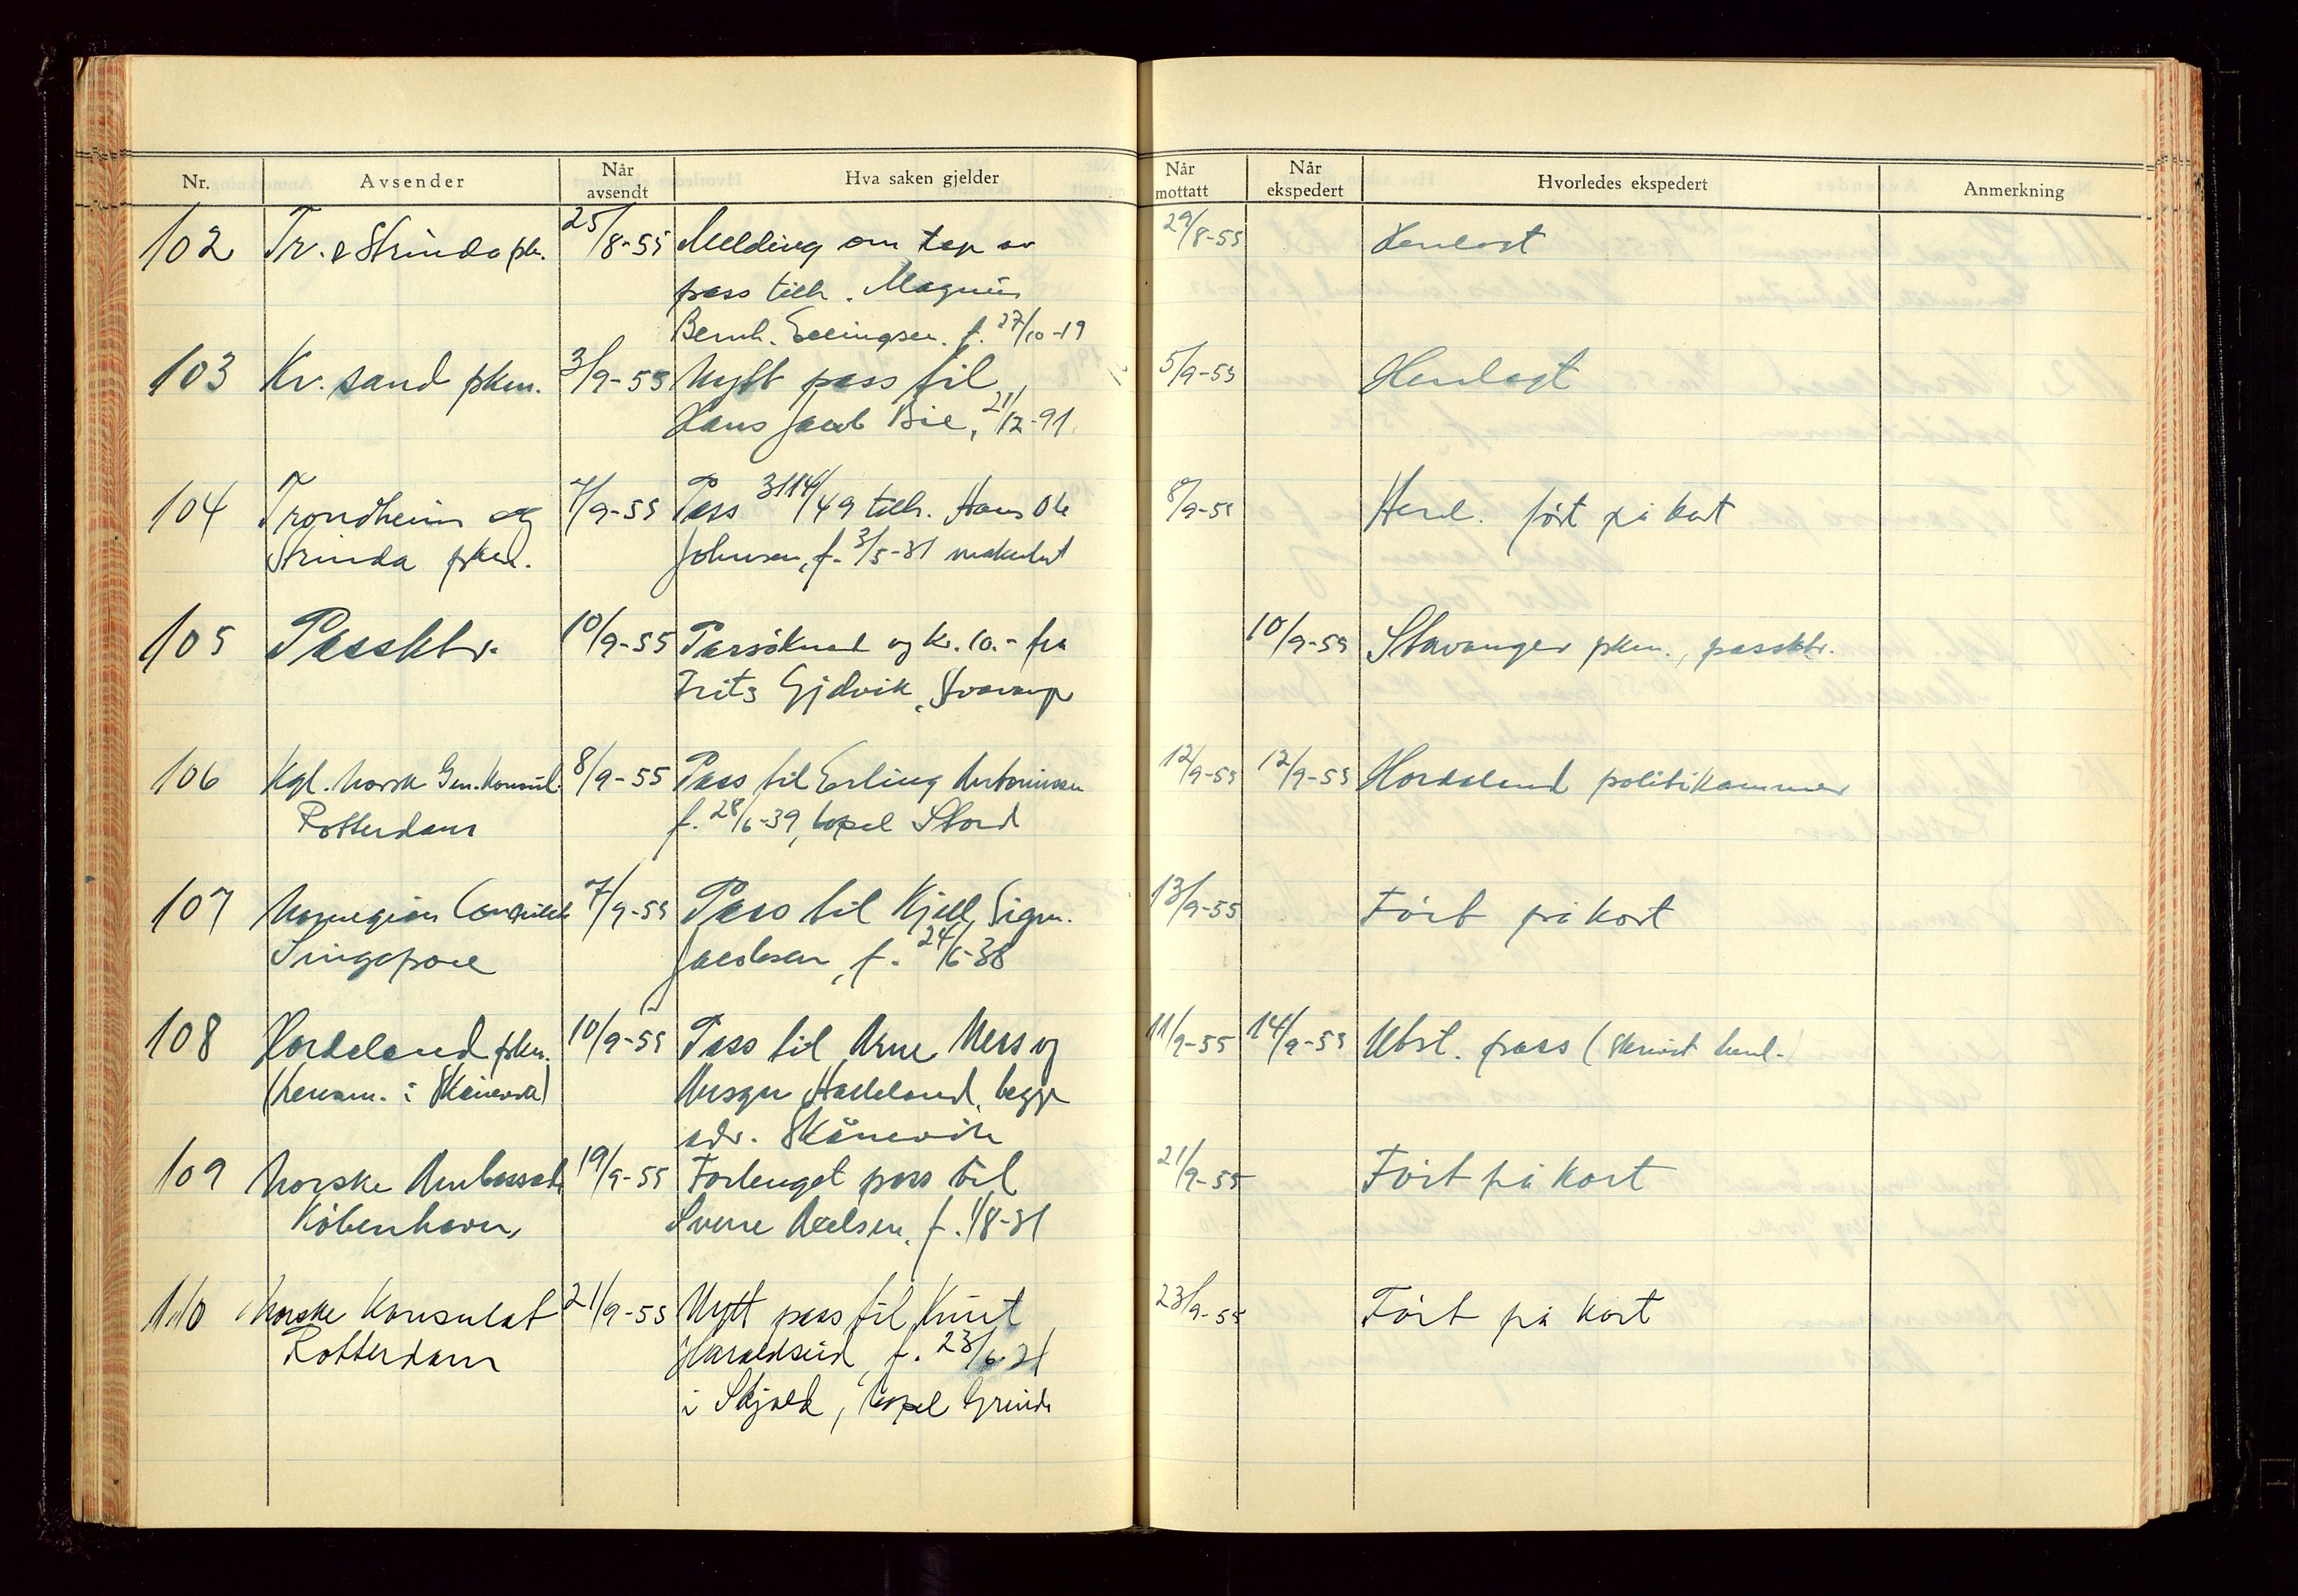 Nr. Avsender Når avsendt Hva saken gjelder Når mottatt Når ekspedert Hvorledes ekspedert Anmerkning
102 Tr. & Strinda pk. 25/8-55 Melding om tap av 29/8-55 Henlagt
pass tilh. Magnus
Bernh. Ellingsen. f. 27/10-19
103 Kr. sand pkm. 3/9-55 Nytt pass til 5/9-55 Henlagt
Hans Jacob Bie, 21/12-91.
104 Trondheim og 7/9-55 Pass 3114/49 tilh. Hans Ole 8/9-55 Henl. ført på kort
Strinda pkm. Johnsen, f. 3/5-31 makulert
105 Passktr. 10/9-55 Passøknad og kr. 10.- fra 10/9-55 Stavanger pkm., passktr.
Frits Gjdvik,
106 Kgl. Norsk Gen.Konsul. 8/9-55 Pass til Erling Antonissen 12/9-55 12/9-55 Hordaland politikammer
Rotterdam f. 28/6-39, bopel Stord
107 Norwegian Consulate 7/9-55 Pass til Kjell Sigm. 13/9-55 Ført på kort
Singapore Jacobsen, f. 24/6-38
108 Hordaland pkm. 10/9-55 Pass til Arne Ness og 11/9-55 14/9-55 Utst. pass (skrivet henl.)
(Lensm. i Skånevik) Hadeland, begge
adr. Skånevik
109 Norske Ambassade 19/9-55 Forlenget pass til 21/9-55 Ført på kort
København, Sverre Axelsen, f. 1/8-31
110 Norske Konsulat 21/9-55 Nytt pass til Knut 23/9-55 Ført på kort
Rotterdam Haraldseid, f. 23/6-21
i Skjold, bopel Grinde